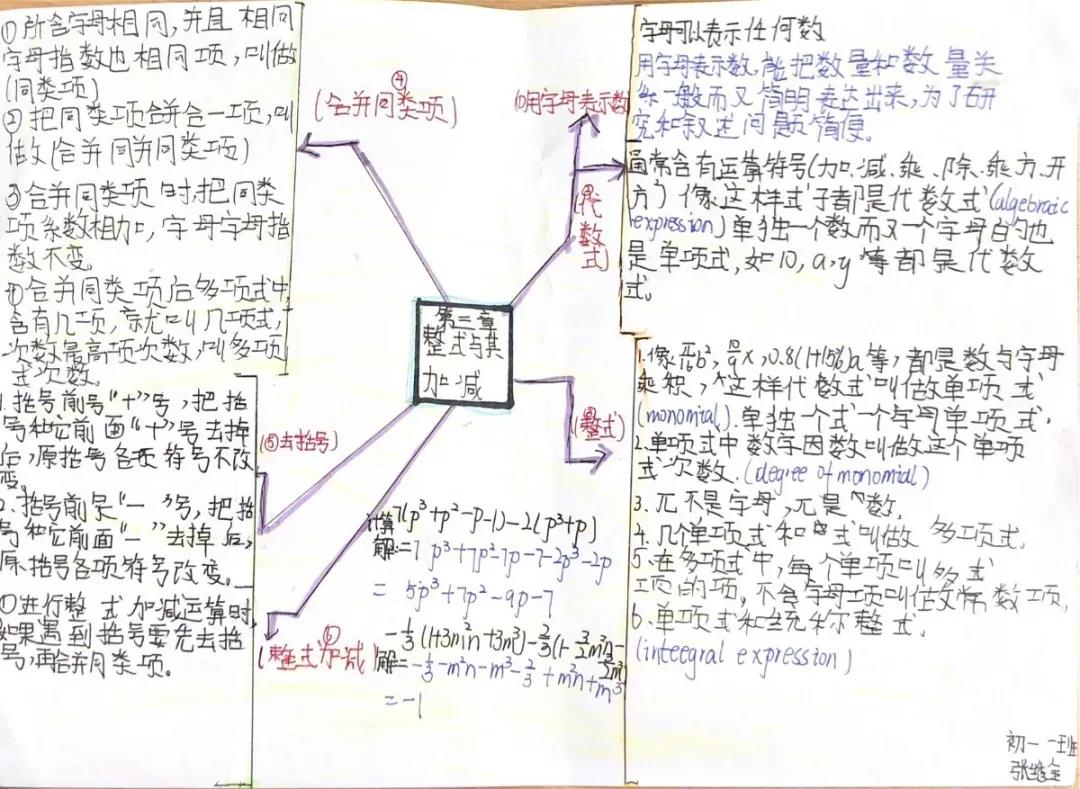 ①所含字母相同,并且相同
字母指数也相同项,叫做
(同类项)
②把同类项合并合一项,叫
做(合并同并同类项)
③合并同类项时,把同类
项系数相加,字母字母指
数不变。
④合并同类项后多项式中
含有几项,就叫几项式,
次数最高项次数,叫多项
式次数。
1.括号前号"十"号,把括
号和它前面"十"号去掉
后,原括号各项符号不改
变。
2.括号前是"一"号,把括
号和它前面"一"去掉后,
原括号各项符号改变。
①进行整式加减运算时,
如果遇到括号要先去括
号,再合并同类项。
④
(合并同类项)
①用字母表示数
②代数式)
第三章
整式与其
加减
③整式)
⑤去括号)
⑥
(整式加减)
计算7(p³+p²-p-1)-2(p³+p)
解:=7p³+7p²-7p-7-2p³-2p
= 5p³+7p²-9p-7
-⅓(1+3m²n+3m³)-⅔(1-3/2m²n-
3/2m³)
解:=-⅓-m²n-m³-⅔+m²n+m³
=-1
字母可以表示任何数
用字母表示数,能把数量和数量关
系一般而又简明表达出来,为了研
究和叙述问题简便。
通常含有运算符号(加.减.乘.除.乘方.开
方)像这样式子都是代数式(algebraic
expression)单独一个数而又一个字母白的也
是单项式,如10,a,y等都是代数
式。
b²,x,0.8(1+15%)a等,都是数与字母
乘积,这样代数式叫做单项式
(monomial).单独个式一个字母单项式,
2.单项式中数字因数叫做这个单项
式次数.(degree of monomial)
3.π不是字母,π是个数.
4.几个单项式和式叫做多项式.
5.在多项式中,每个单项叫多式
项的项,不含字母项叫做常数项,
6.单项式和统称整式.
(inteegral expression)
初一一班
张